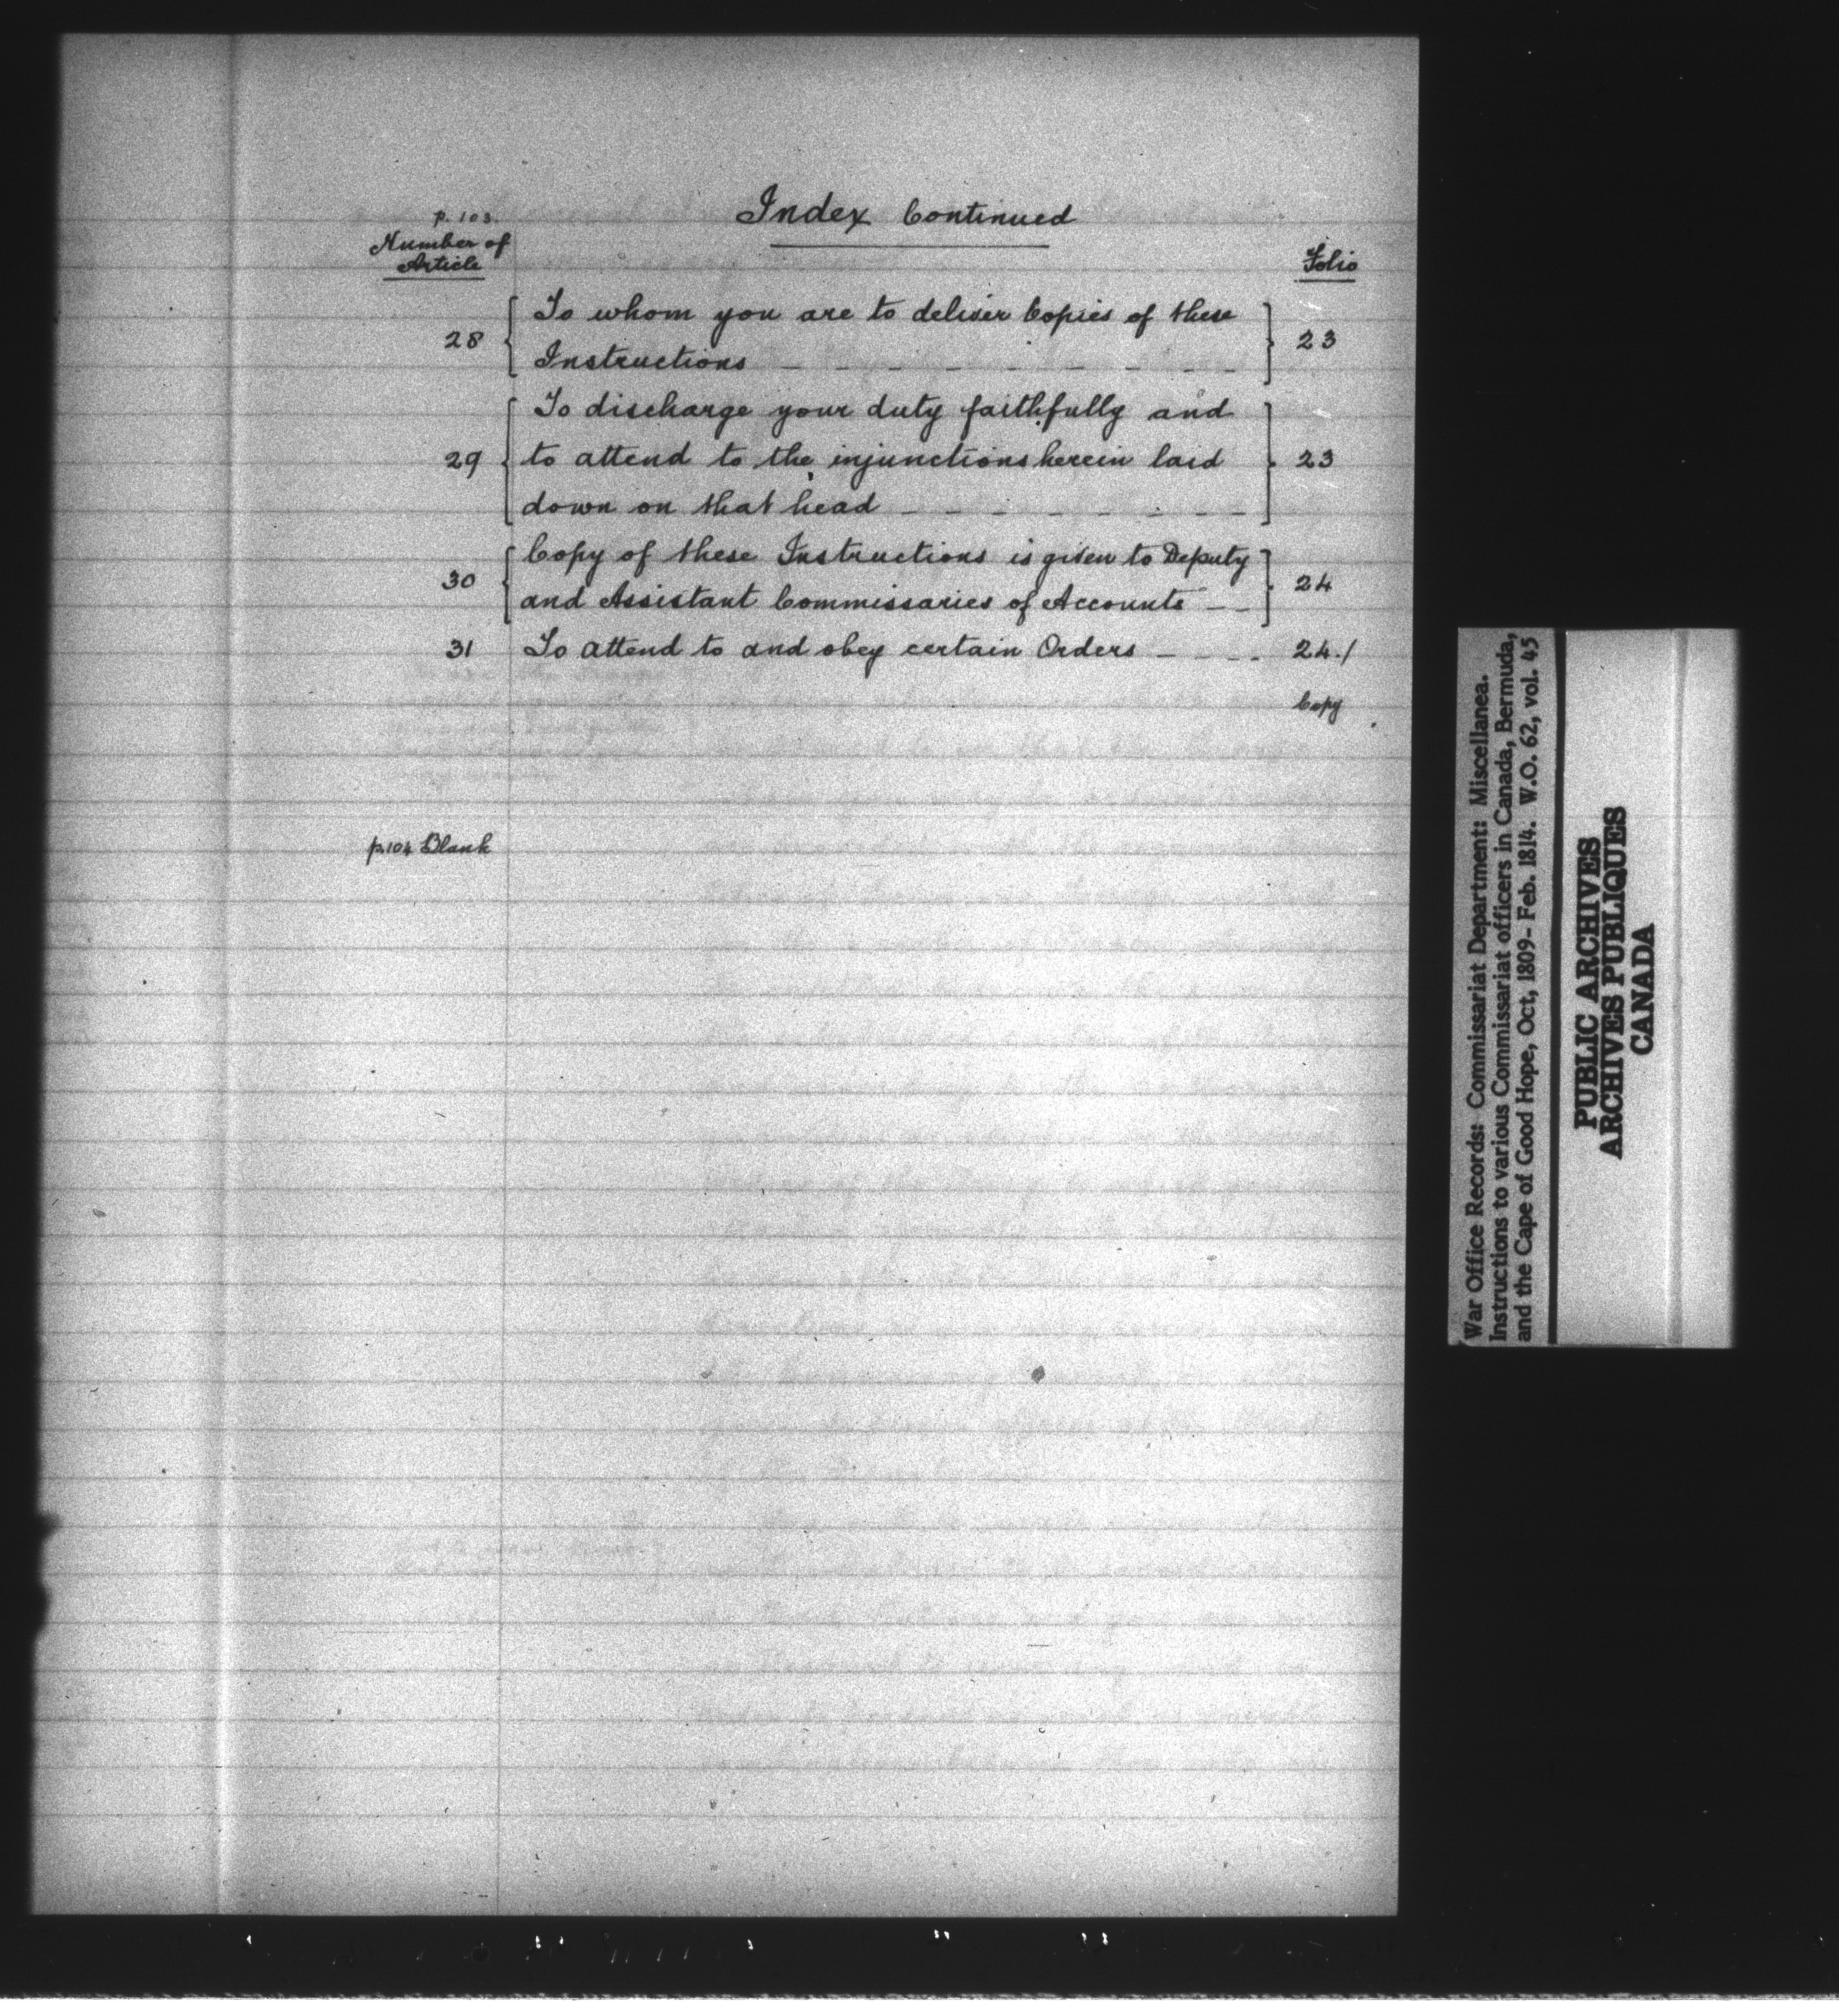 p. 103.
Index Continued
Number of
Article
Folio
28 { To whom you are to deliver Copies of these
Instructions – – – – – – – – – } 23
29 { To discharge your duty faithfully and
to attend to the injunctions herein laid
down on that head – – – – – – – } 23
30 { Copy of these Instructions is given to Deputy
and Assistant Commissaries of Accounts – – } 24
31 To attend to and obey certain Orders – – – – 24./
Copy
p.104 Blank
War Office Records: Commissariat Department: Miscellanea.
Instructions to various Commissariat officers in Canada, Bermuda,
and the Cape of Good Hope, Oct, 1809- Feb. 1814. W.O. 62, vol. 45
PUBLIC ARCHIVES
ARCHIVES PUBLIQUES
CANADA